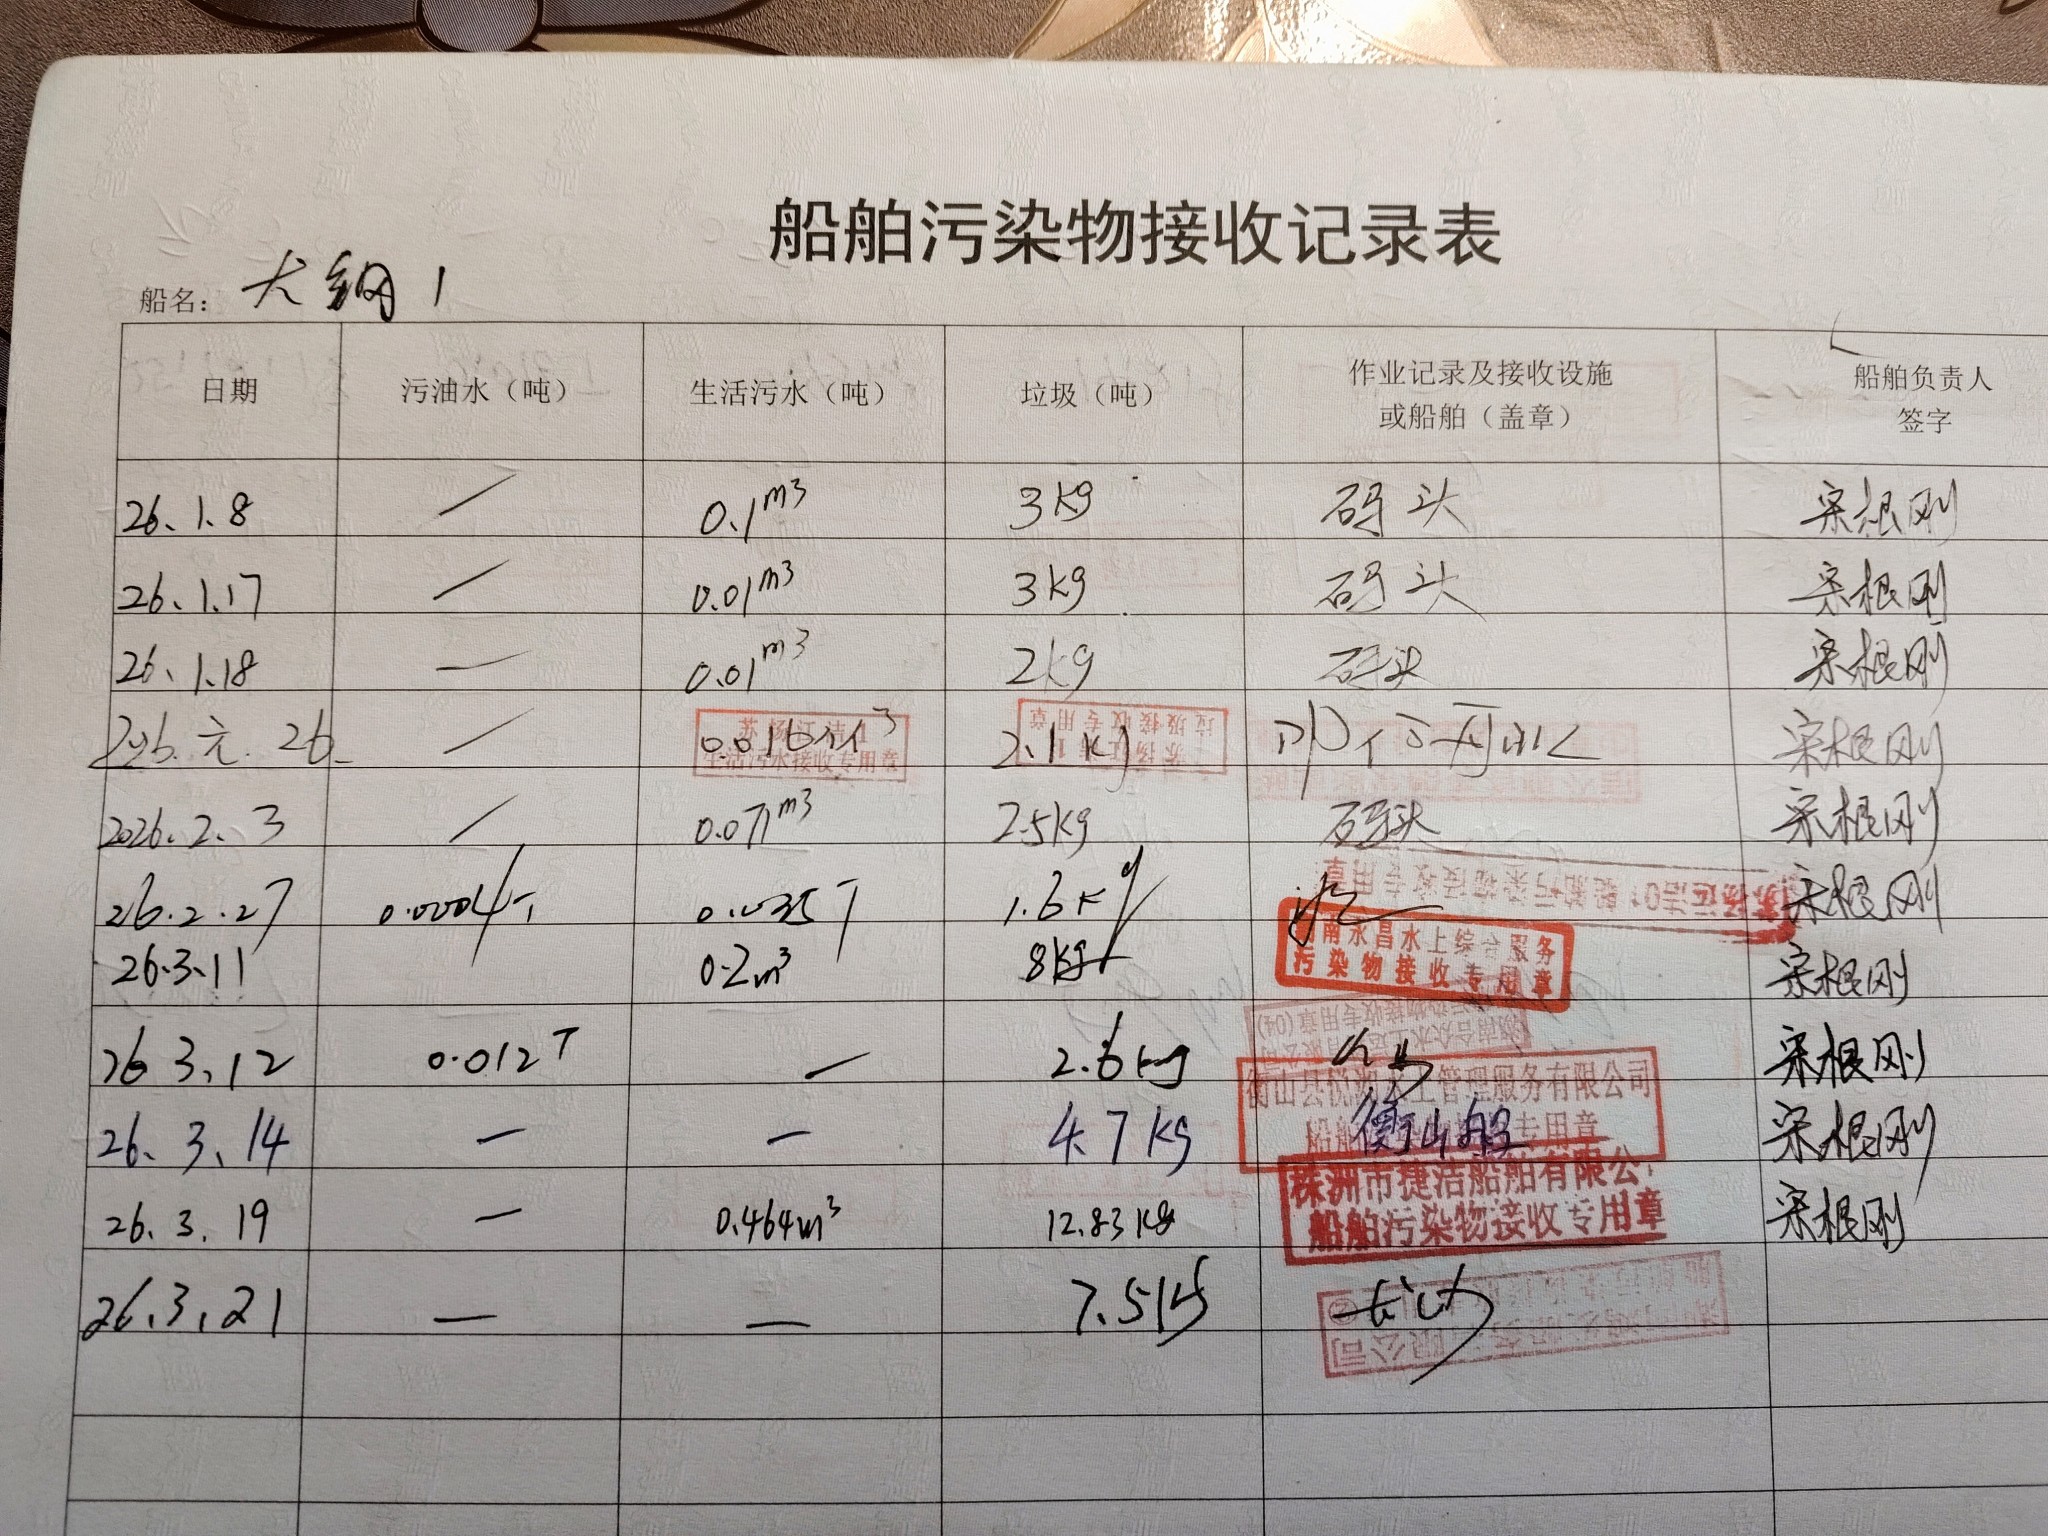 船舶污染物接收记录表
船名： 大钢1
日期 污油水（吨） 生活污水（吨） 垃圾（吨） 作业记录及接收设施或船舶（盖章） 船舶负责人签字
26.1.8 / 0.1m3 3kg 码头 宋根刚
26.1.17 / 0.01m3 3kg 码头 宋根刚
26.1.18 — 0.01m3 2kg 码头 宋根刚
26. / 0.016m3 2.1kg 宋根刚
生活污水接收专用章
垃圾接收专用章
2026.2.3 / 0.071m3 2.5kg 码头 宋根刚
26.2.27 0.0004T 0.035T 1.6kg 宋根刚
船舶污染物接收专用章
26.3.11 0.2m3 8kg 宋根刚
南永昌水上综合服务
污染物接收专用章
26.3.12 0.012T — 2.6kg 宋根刚
26.3.14 — — 4.7kg 衡山船 宋根刚
衡山县悦 管理服务有限公司
船舶 专用章
26.3.19 — 0.464m3 12.83kg 宋根刚
株洲市捷洁船舶有限公
船舶污染物接收专用章
26.3.21 — — 7.5kg